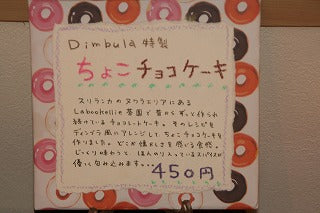 Dimbula 特製
ちょこ チョコ ケーキ
スリランカの ヌワラエリアにある
Labookellie 茶園で 昔から ずっと作られ
続けている チョコレートケーキ。 そのレシピを
ディンブラ風にアレンジして ちょこチョコケーキを
作りました。 どこか懐かしさを感じる食感。
じっくり味わうと、ほんのり入っているスパイスが
優しく包み込みます・・・
450円